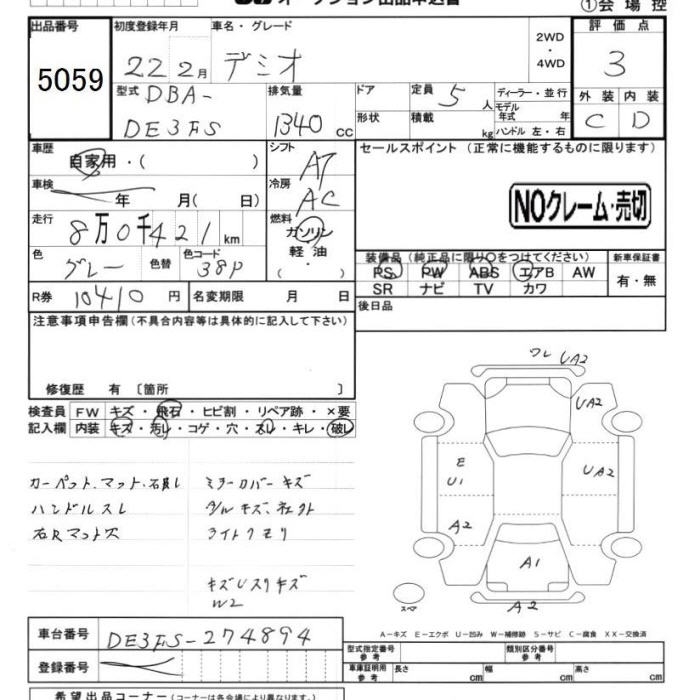 オークション出品申込書
①会場控
出品番号
初度登録年月
車名・グレード
2WD
・
4WD
評価点
5059
22 2月
デミオ
3
型式
DBA-
DE3FS
排気量
1340 cc
ドア
形状
定員 5 人
積載 kg
ディーラー・並行
モデル年式 年
ハンドル 左・右
外装
内装
C
D
車歴
自家用・( )
シフト
AT
セールスポイント (正常に機能するものに限ります)
車検
年 月( 日)
冷房
AC
NOクレーム・売切
走行
8万0千421 km
燃料
ガソリン
軽油
・( )
色
グレー
色替
色コード
38P
装備品(純正品に限り〇をつけてください)
新車保証書
PS PW ABS エアB AW
SR ナビ TV カワ
有・無
R券 10410 円
名変期限 月 日
後日品
注意事項申告欄(不具合内容等は具体的に記入して下さい)
修復歴 有 〔箇所 〕
検査員
記入欄
FW キズ・飛石・ヒビ割・リペア跡・×要
内装 キズ・汚レ・コゲ・穴・スレ・キレ・破レ
ワレ UA2
UA2
E
U1
UA2
A2
A1
A2
スペア
カーペット、マット、
ハンドルスレ
右Rマット欠
ミラーカバーキズ
ライトクモリ
W2
A-キズ E-エクボ U-凹み W-補修跡 S-サビ C-腐食 XX-交換済
車台番号
DE3FS-274894
登録番号
型式指定番号
参考
類別区分番号
参考
車庫証明用
参考
長さ cm
幅 cm
高さ cm
希望出品コーナー(コーナーは各会場により異なります)